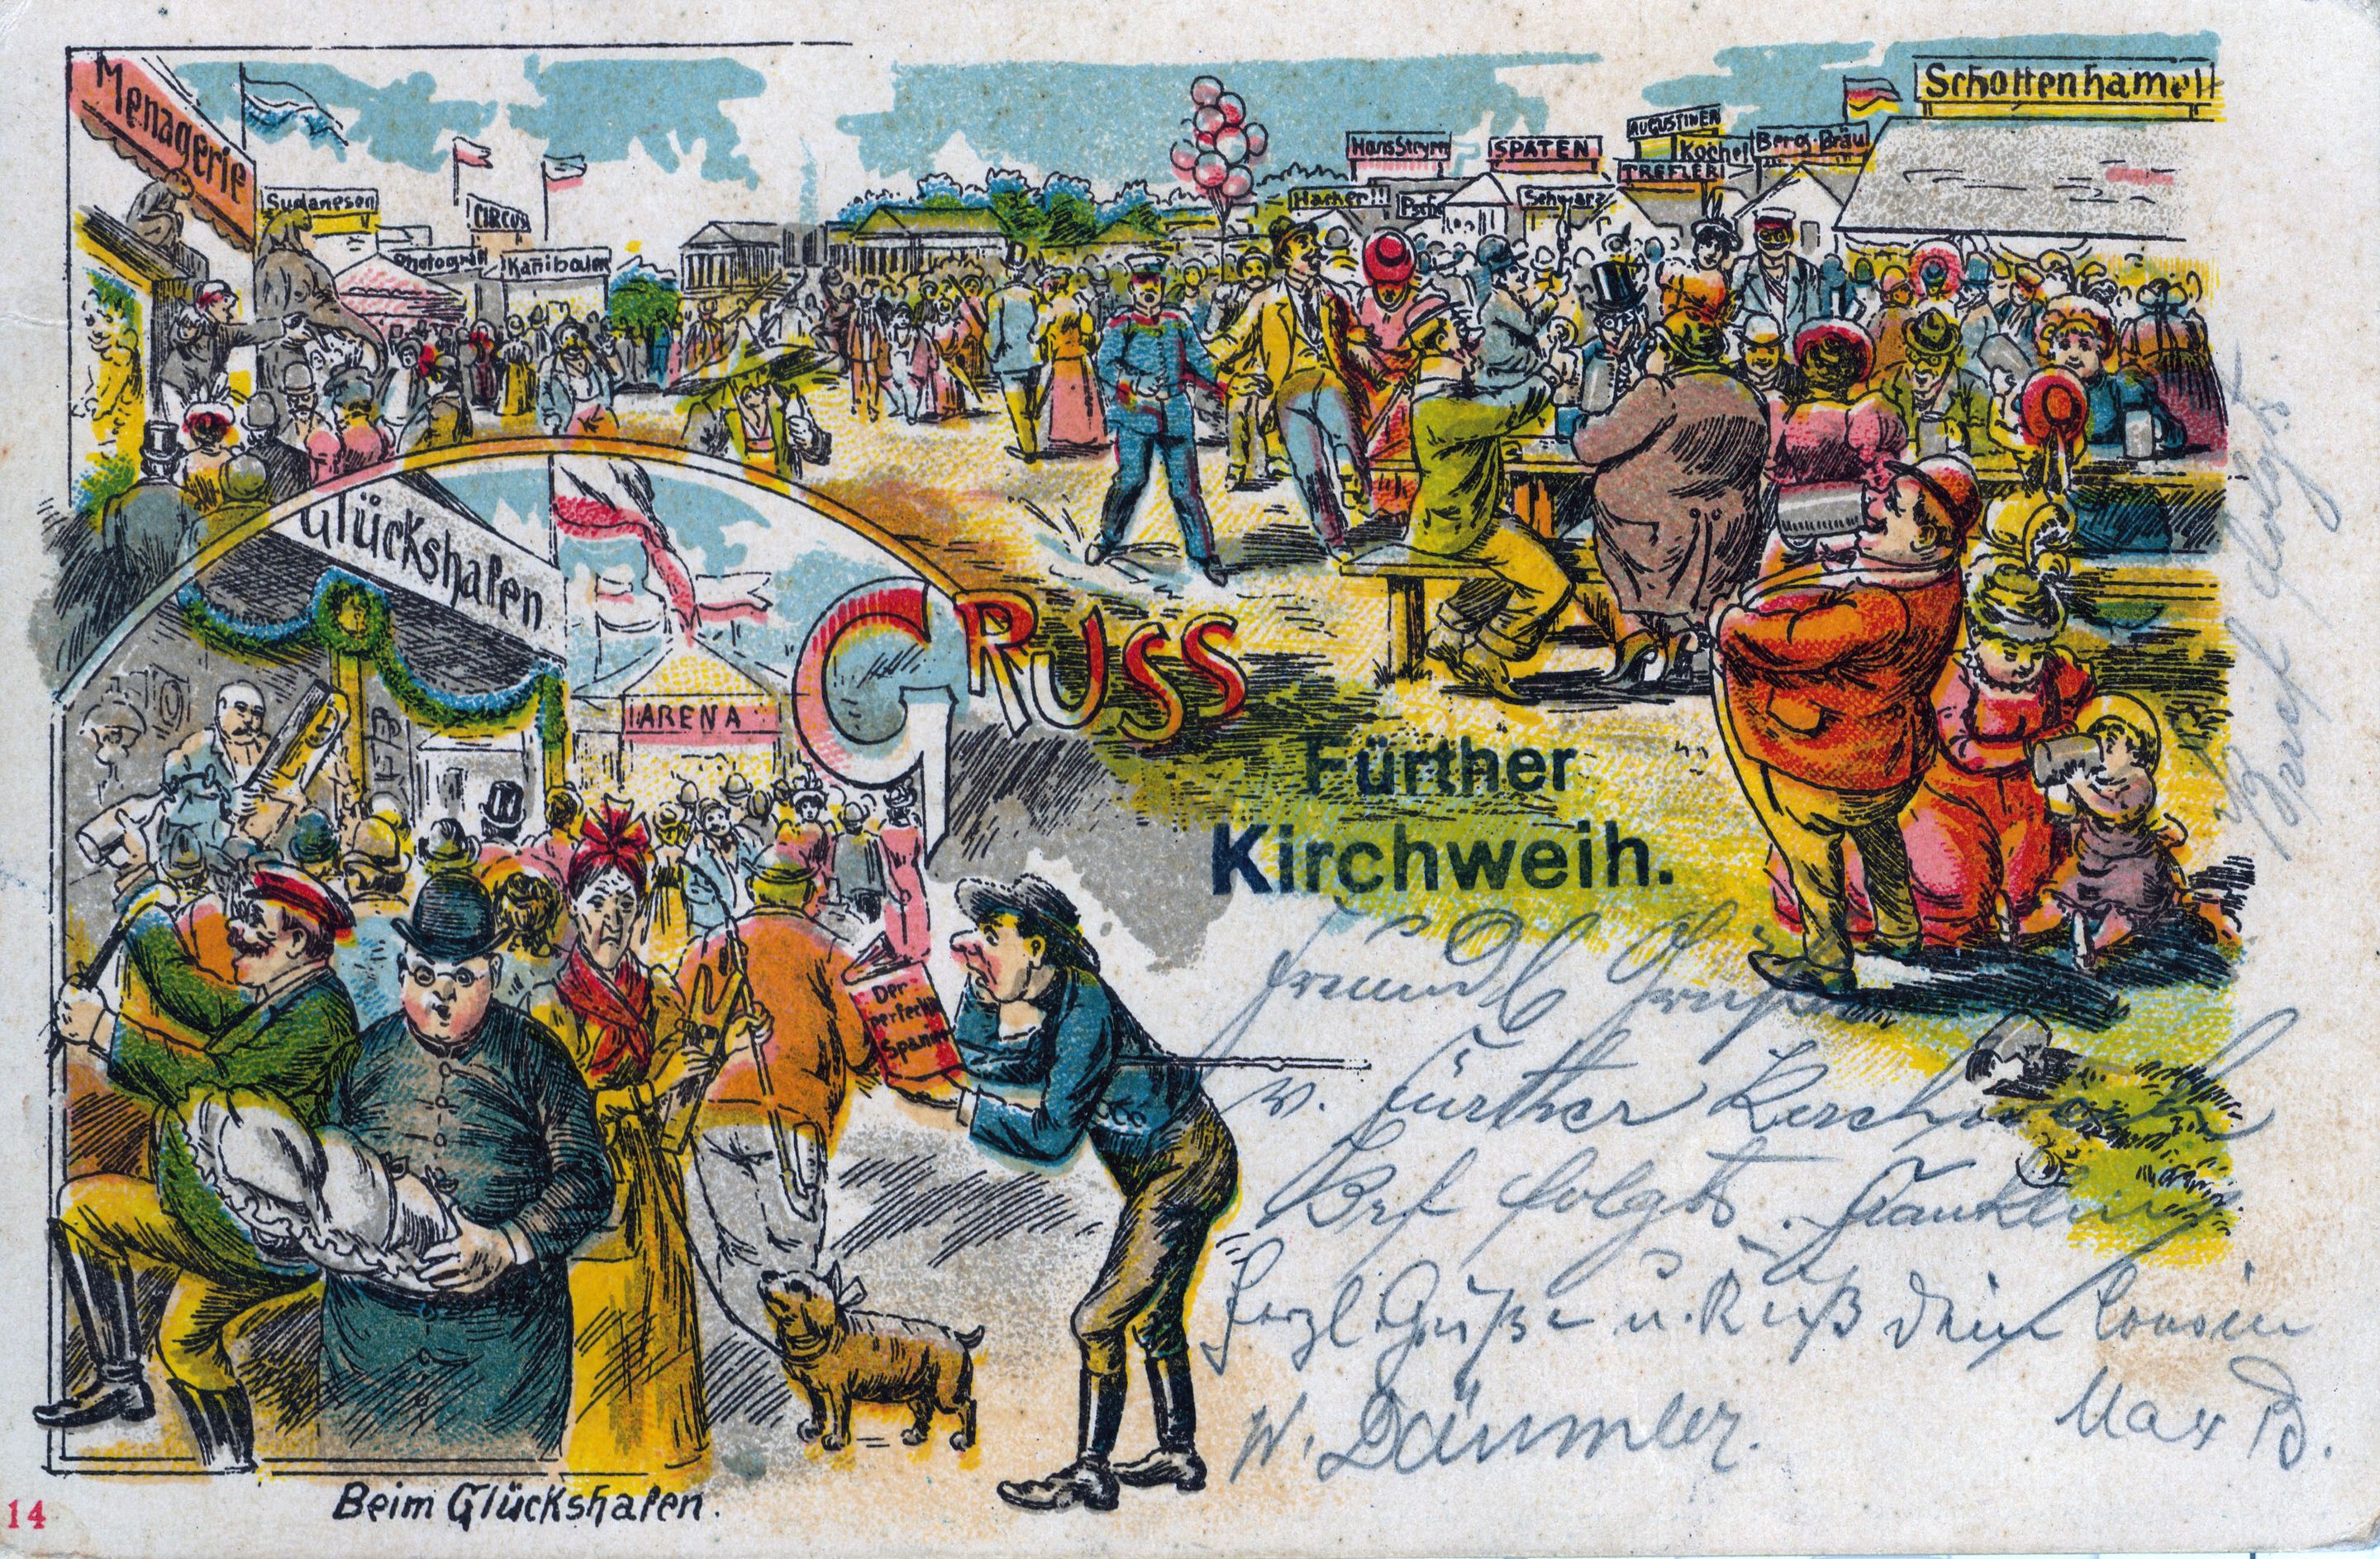 Menagerie
Sudanesen
CIRCUS
Photograph
Kanibalen
Hans Steyrer
Hacker!!
SPATEN
Schwarz
AUGUSTINER
Kochel
TREFLER
Berg-Bräu
Schottenhamel
Glückshafen
ARENA
GRUSS
Fürther
Kirchweih.
Der
perfecte
Spanier
Freundl Grüße
v. Fürther Kirchweih
Brf folgt.
Herzl. Grüße u. Kuß dein Cousin
W. Däumler.
Max B.
Brief folgt
Beim Glückshafen.
14